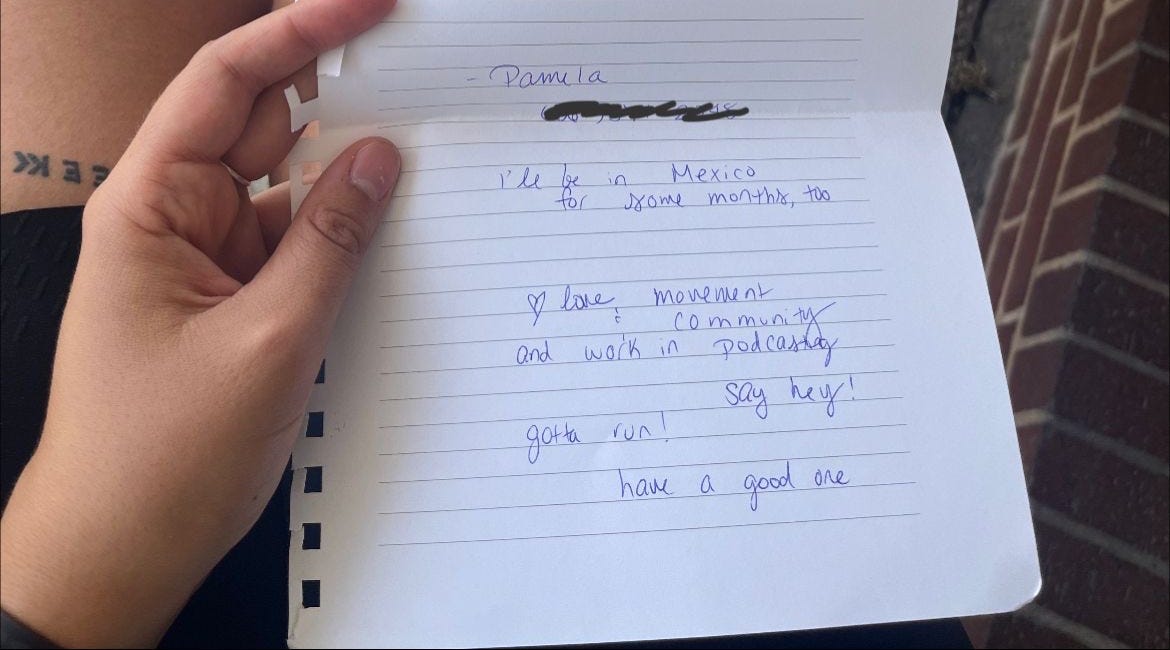 - Pamela
I'll be in Mexico
for some months, too
♡ love movement
& community
and work in podcasting
say hey!
gotta run!
have a good one